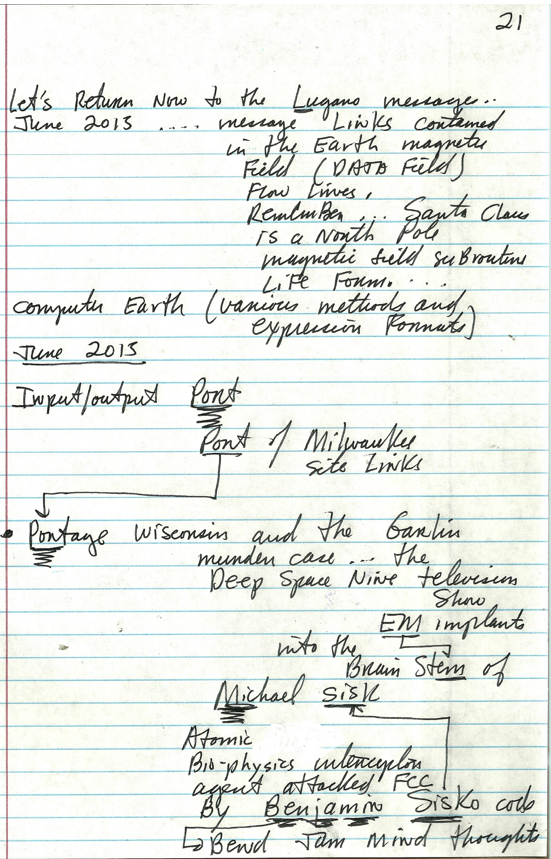 21
Let's Return Now to the Lugano messages..
June 2013 ..... message Links contained
in the Earth magnetic
Field (DATA Field)
Flow Lines.
Remember... Santa Claus
is a North Pole
magnetic field subroutine
Life Form. ...
computer Earth (various methods and
expression Formats)
June 2013
Input/output Port
Port of Milwaukee
Site Links
• Portage Wisconsin and the
murder case ... the
Deep Space Nine television
Show
EM implants
into the
Brain Stem of
Michael Sisk
Atomic
Bio-physics interception
agent attacked FCC
By Benjamin Sisko code
Bend Jam Mind thoughts